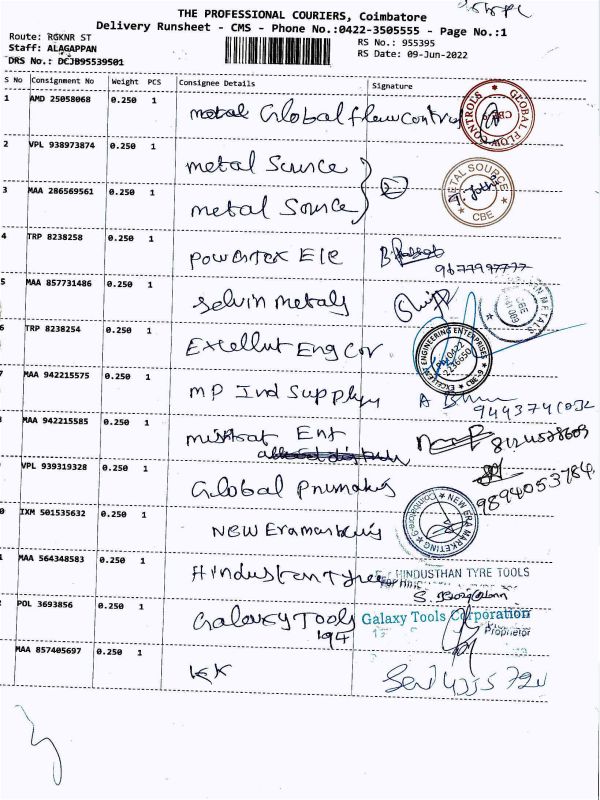 THE PROFESSIONAL COURIERS, Coimbatore
Delivery Runsheet - CMS - Phone No.:0422-3505555 - Page No.:1
Route: RGKNR ST
Staff: ALAGAPPAN
DRS No.: DCJB95539501
RS No.: 955395
RS Date: 09-Jun-2022
S No Consignment No Weight PCS Consignee Details Signature
1 AMD 25058068 0.250 1 Global flow control
GLOBAL FLOW CONTROLS CBE
2 VPL 938973874 0.250 1 metal Source
3 MAA 286569561 0.250 1 metal Source
METAL SOURCE CBE
4 TRP 8238258 0.250 1 Powertex Ele
9677997777
5 MAA 857731486 0.250 1 Selvin metals
6 TRP 8238254 0.250 1 Excellent Eng Cor
EXCELLENT ENGINEERING ENTERPRISES
7 MAA 942215575 0.250 1 MP Ind Supply
MAA 942215585 0.250 1 Ent
VPL 939319328 0.250 1 Global
9894053784
0 IXM 501535632 0.250 1 New Era
NEW ERA MARKETING
MAA 564348583 0.250 1 Hindustan Tyre
HINDUSTHAN TYRE TOOLS
POL 3693856 0.250 1 Galaxy Tools
194
Galaxy Tools Corporation
Proprietor
MAA 857405697 0.250 1 KK